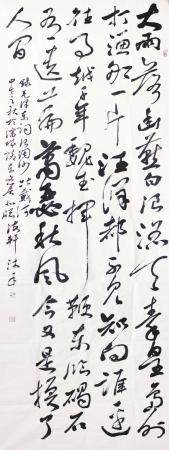 大雨落幽燕白浪滔天秦皇島外
打漁船一片汪洋都不見知向誰邊
往事越千年魏武揮鞭東臨碣石
有遺篇蕭瑟秋風今又是換了
人間
錄毛澤東詞浪淘沙北戴河
之秋於